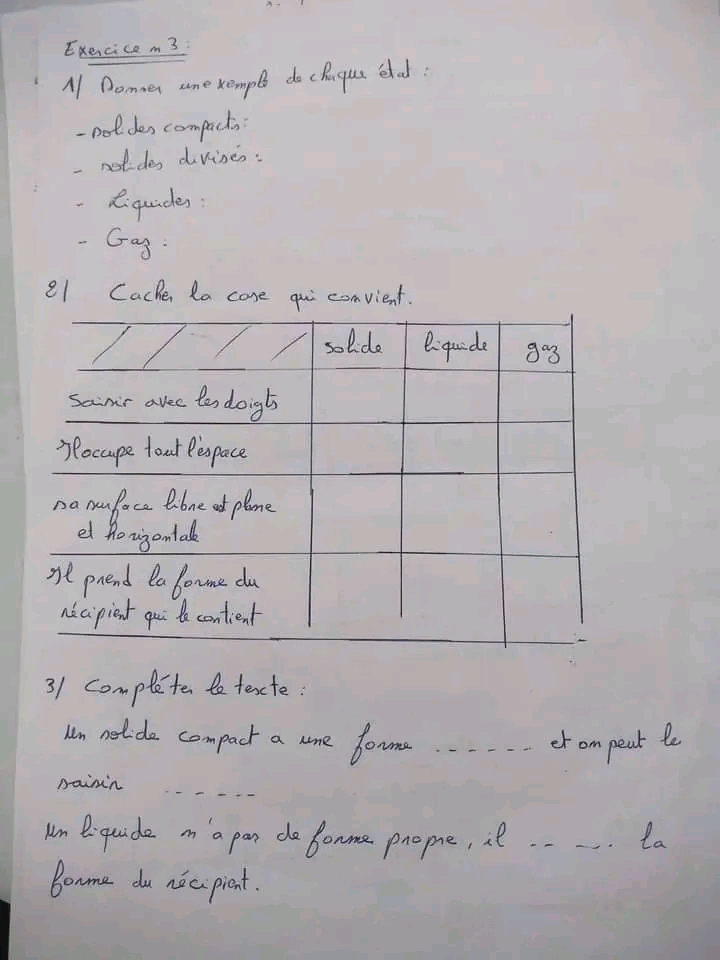 Exercice n 3:
1/ Donner une exemple de chaque état :
- solides compacts:
- solides divisés :
- Liquides :
- Gaz :
2/ Cacher la case qui convient.
solide liquide gaz
saisir avec les doigts
Il occupe tout l'espace
sa surface libre est plane
et horizontale
Il prend la forme du
récipient qui le contient
3/ Compléter le texte :
Un solide compact a une forme ------ et on peut le
saisir ------
Un liquide n'a pas de forme propre, il ----- la
forme du récipient.